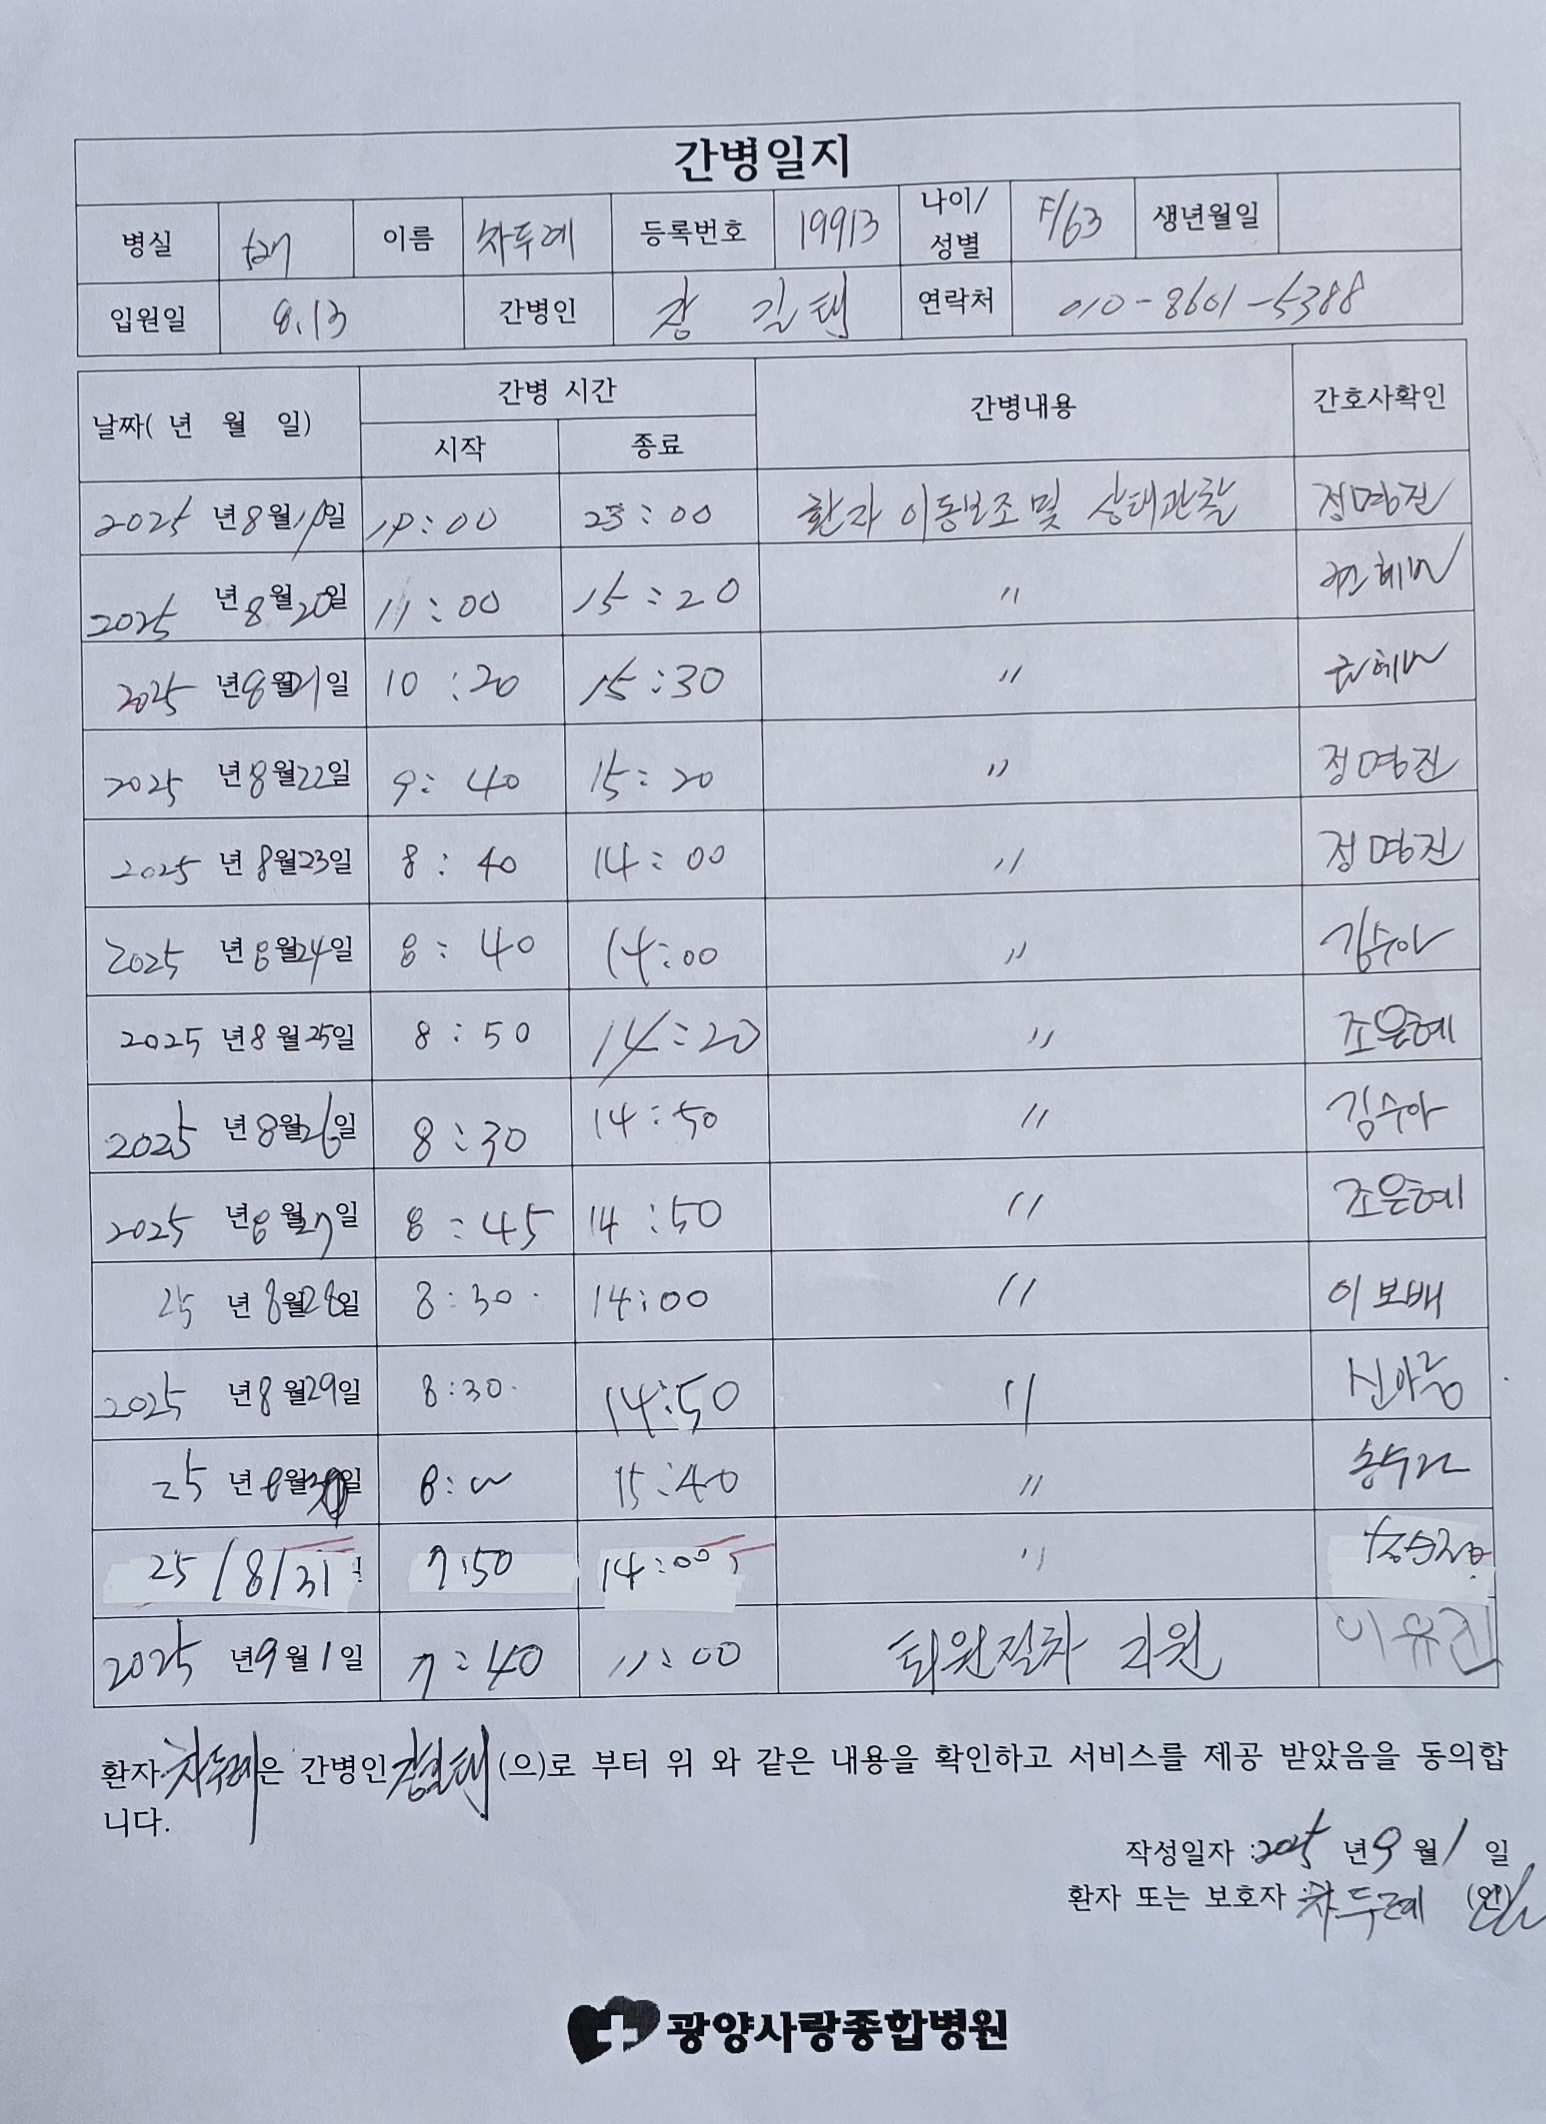 간병일지
병실 이름 차두례 등록번호 19913 나이/성별 F/63 생년월일
입원일 8.13 간병인 길태 연락처 010-8601-5388
날짜( 년 월 일) 간병 시간 간병내용 간호사확인
시작 종료
2025 년 8월 일 :00 23:00 환자 이동보조 및 상태관찰 정명진
2025 년 8월 20일 11:00 15:20 〃
2025 년 8월 21일 10:20 15:30 〃
2025 년 8월 22일 9:40 15:20 〃 정명진
2025 년 8월 23일 8:40 14:00 〃 정명진
2025 년 8월 24일 8:40 14:00 〃 김수아
2025 년 8월 25일 8:50 14:20 〃 조은혜
2025 년 8월 26일 8:30 14:50 〃 김수아
2025 년 8월 27일 8:45 14:50 〃 조은혜
25 년 8월 28일 8:30 14:00 〃 이보배
2025 년 8월 29일 8:30 14:50 〃 신아름
25 년 8월 30일 8:00 15:40 〃
25/8/31 7:50 14:00 〃
2025 년 9월 1일 7:40 11:00 퇴원절차 지원 이유진
환자 차두례은 간병인 (으)로 부터 위 와 같은 내용을 확인하고 서비스를 제공 받았음을 동의합
니다.
작성일자 : 2025 년 9 월 1 일
환자 또는 보호자 : 차두례 (인)
광양사랑종합병원